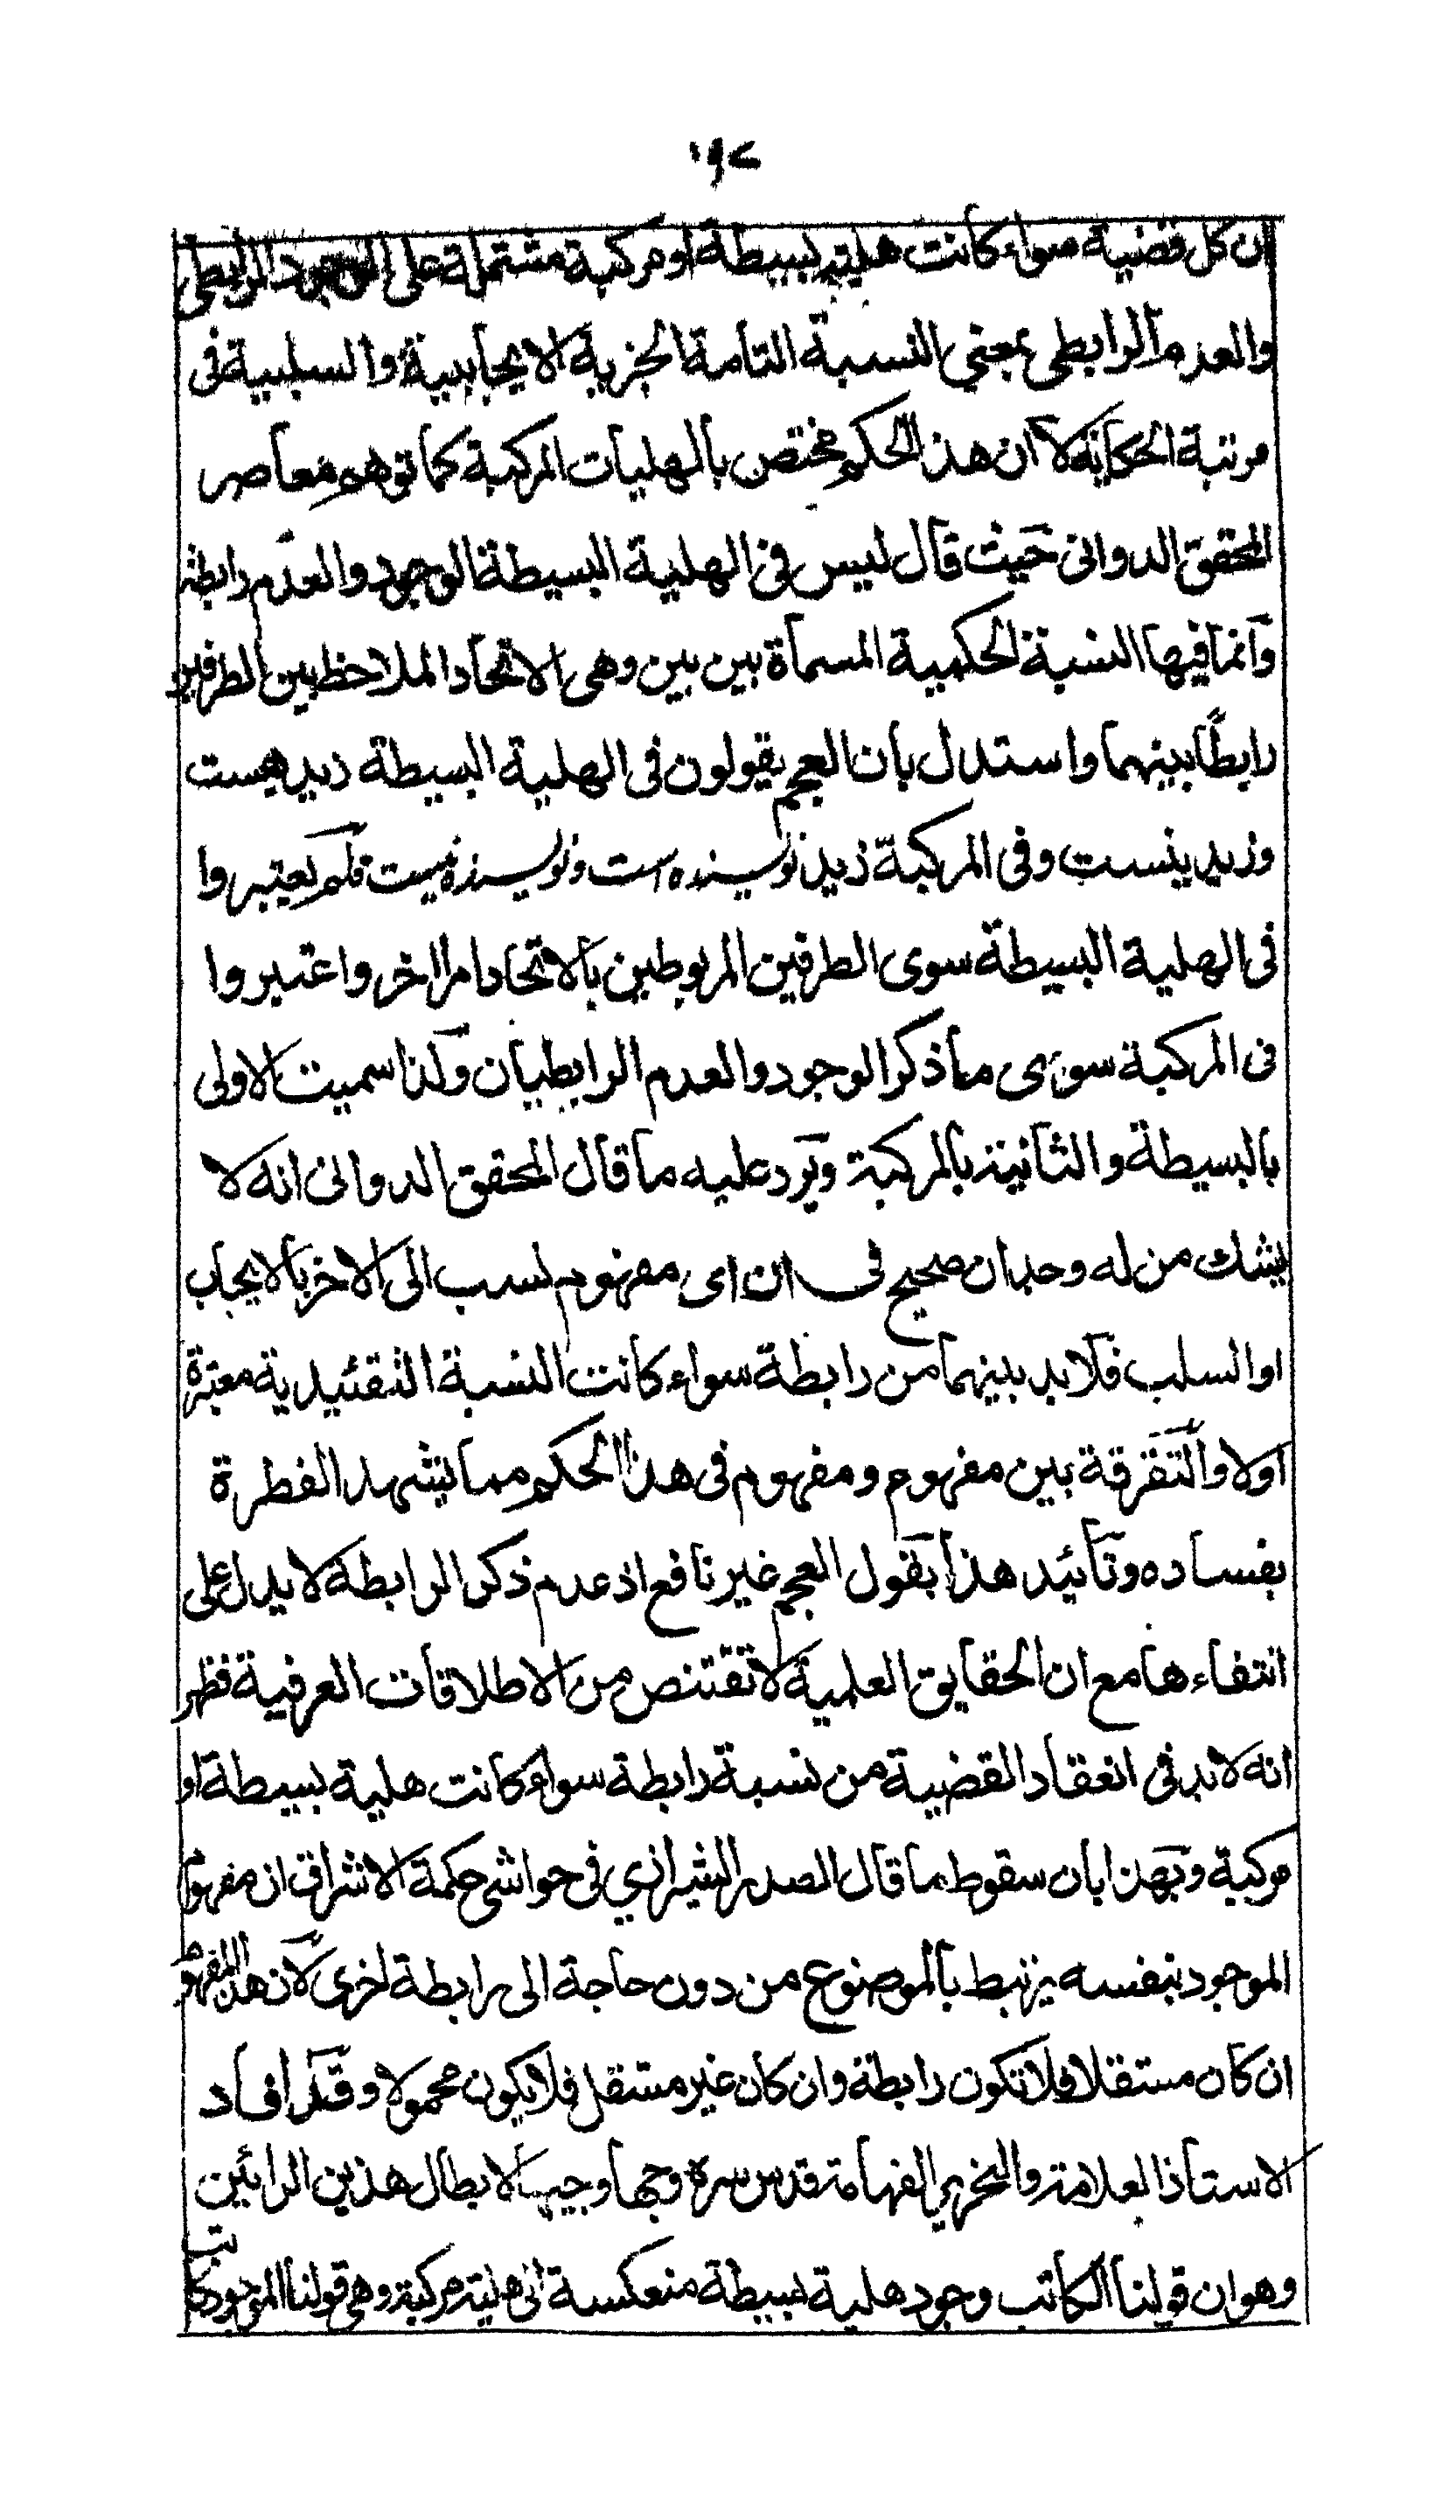 ١٩٢
ان كل قضية سواء كانت هلية بسيطة او مركبة مشتملة على الوجود الرابطى
والعدم الرابطى بمعنى النسبة التامة الخبرية الايجابية والسلبية فى
مرتبة الحكاية لا ان هذا الحكم مختص بالهليات المركبة كما توهم معاصر
المحقق الدوانى حيث قال ليس فى الهلية البسيطة الوجود والعدم رابطة
وانما فيها النسبة الحكمية المسماة بين بين وهى الاتحاد الملاحظ بين الطرفين
رابطاً بينهما واستدل بان العجم يقولون فى الهلية البسيطة زيد هست
وزيد نيست وفى المركبة زيد نويسنده است ونويسنده نيست فلم يعتبروا
فى الهلية البسيطة سوى الطرفين المربوطين بالاتحاد امرا اخر واعتبروا
فى المركبة سوى ما ذكر الوجود والعدم الرابطيان ولذا سميت الاولى
بالبسيطة والثانية بالمركبة ويرد عليه ما قال المحقق الدوانى انه لا
يشك من له وجدان صحيح فى ان اى مفهوم نسب الى الاخر بالايجاب
او السلب فلابد بينهما من رابطة سواء كانت النسبة التقئيدية معتبرة
اولا والتفرقة بين مفهوم ومفهوم فى هذا الحكم مما يشهد الفطرة
بفساده وتأئيد هذا بقول العجم غير نافع اذ عدم ذكر الرابطة لا يدل على
انتفاءها مع ان الحقايق العلمية لا تقتنص من الاطلاقات العرفية فظهر
انه لابد فى انعقاد القضية من نسبة رابطة سواء كانت هلية بسيطة او
مركبة وبهذا بان سقوط ما قال الصدر الشيرازي فى حواشى حكمة الاشراق ان مفهوم
الموجود بنفسه يرتبط بالموضوع من دون حاجة الى رابطة اخرى لان هذا المفهوم
ان كان مستقلا فلا تكون رابطة وان كان غير مستقل فلا يكون محمولا وقد افاد
الاستاذ العلامة والنحرير الفهامة قدس سره وجها وجيها لابطال هذين الرائين
وهو ان قولنا الكاتب وجود هلية بسيطة منعكسة الى هلية مركبة وهى قولنا الموجود كاتب